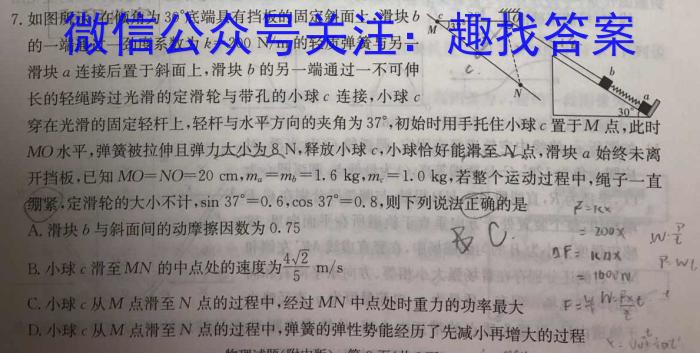 7.如图所示,在倾角为30°底端具有挡板的固定斜面上,滑块b
的一端通过一劲度系数为k=200 N/m的轻质弹簧与另一
微信公众号关注:趣找答案
滑块a连接后置于斜面上,滑块b的另一端通过一不可伸
长的轻绳跨过光滑的定滑轮与带孔的小球c连接,小球c
M
c
N
b
a
30°
穿在光滑的固定轻杆上,轻杆与水平方向的夹角为37°,初始时用手托住小球c置于M点,此时
MO水平,弹簧被拉伸且弹力大小为8 N,释放小球c,小球恰好能滑至N点,滑块a始终未离
开挡板,已知MO=NO=20 cm,mₐ=m_b=1.6 kg,m_c=1.0 kg,若整个运动过程中,绳子一直
绷紧,定滑轮的大小不计,sin 37°=0.6,cos 37°=0.8,则下列说法正确的是
A. 滑块b与斜面间的动摩擦因数为0.75
B. 小球c滑至MN的中点处的速度为4√2/5 m/s
C. 小球c从M点滑至N点的过程中,经过MN中点处时重力的功率最大
D. 小球c从M点滑至N点的过程中,弹簧的弹性势能经历了先减小再增大的过程
B C.
=200x